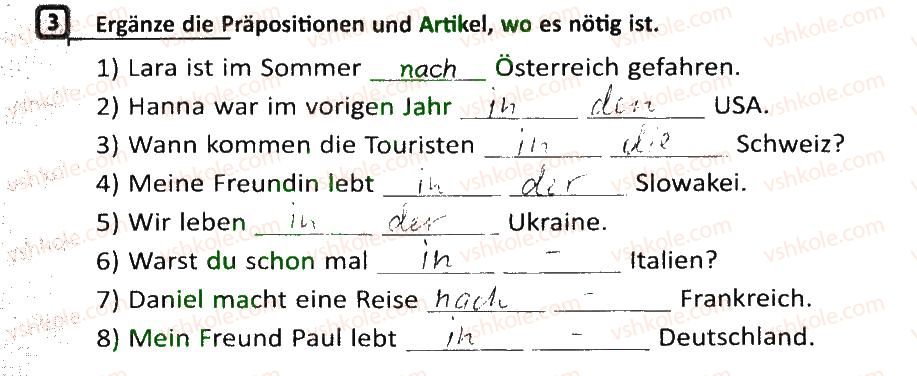 3 Ergänze die Präpositionen und Artikel, wo es nötig ist.
1) Lara ist im Sommer nach Österreich gefahren.
2) Hanna war im vorigen Jahr in den USA.
3) Wann kommen die Touristen in die Schweiz?
4) Meine Freundin lebt in der Slowakei.
5) Wir leben in der Ukraine.
6) Warst du schon mal in – Italien?
7) Daniel macht eine Reise nach – Frankreich.
8) Mein Freund Paul lebt in – Deutschland.